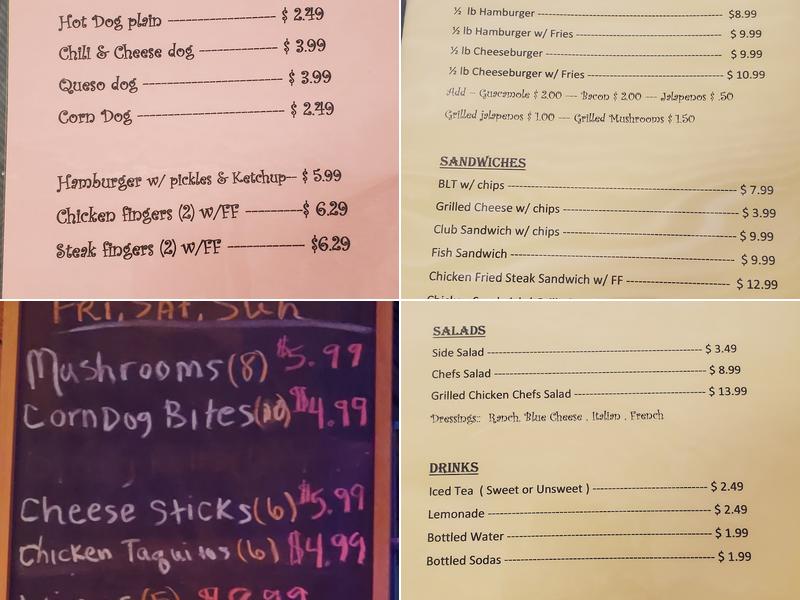 Hot Dog plain ---------------------- $ 2.49
Chili & Cheese dog ---------------- $ 3.99
Queso dog ---------------------------- $ 3.99
Corn Dog ----------------------------- $ 2.49
Hamburger w/ pickles & Ketchup-- $ 5.99
Chicken fingers (2) w/FF -----------$ 6.29
Steak fingers (2) w/FF --------------- $6.29
½ lb Hamburger ---------------------------------------- $8.99
½ lb Hamburger w/ Fries ------------------------------- $ 9.99
½ lb Cheeseburger -------------------------------------- $ 9.99
½ lb Cheeseburger w/ Fries ----------------------------- $ 10.99
Add – Guacamole $ 2.00 --- Bacon $ 2.00 --- Jalapenos $ .50
Grilled jalapenos $ 1.00 --- Grilled Mushrooms $ 1.50
SANDWICHES
BLT w/ chips -------------------------------------------------- $ 7.99
Grilled Cheese w/ chips -------------------------------------- $ 3.99
Club Sandwich w/ chips -------------------------------------- $ 9.99
Fish Sandwich ------------------------------------------------ $ 9.99
Chicken Fried Steak Sandwich w/ FF ---------------------- $ 12.99
FRI, SAT, SUN
Mushrooms (8) $5.99
Corn Dog Bites (10) $4.99
Cheese Sticks (6) $5.99
Chicken Taquitos (6) $4.99
SALADS
Side Salad ------------------------------------------------ $ 3.49
Chefs Salad ---------------------------------------------- $ 8.99
Grilled Chicken Chefs Salad ---------------------------- $ 13.99
Dressings: Ranch, Blue Cheese , Italian , French
DRINKS
Iced Tea ( Sweet or Unsweet ) -------------------------- $ 2.49
Lemonade ------------------------------------------------ $ 2.49
Bottled Water -------------------------------------------- $ 1.99
Bottled Sodas -------------------------------------------- $ 1.99